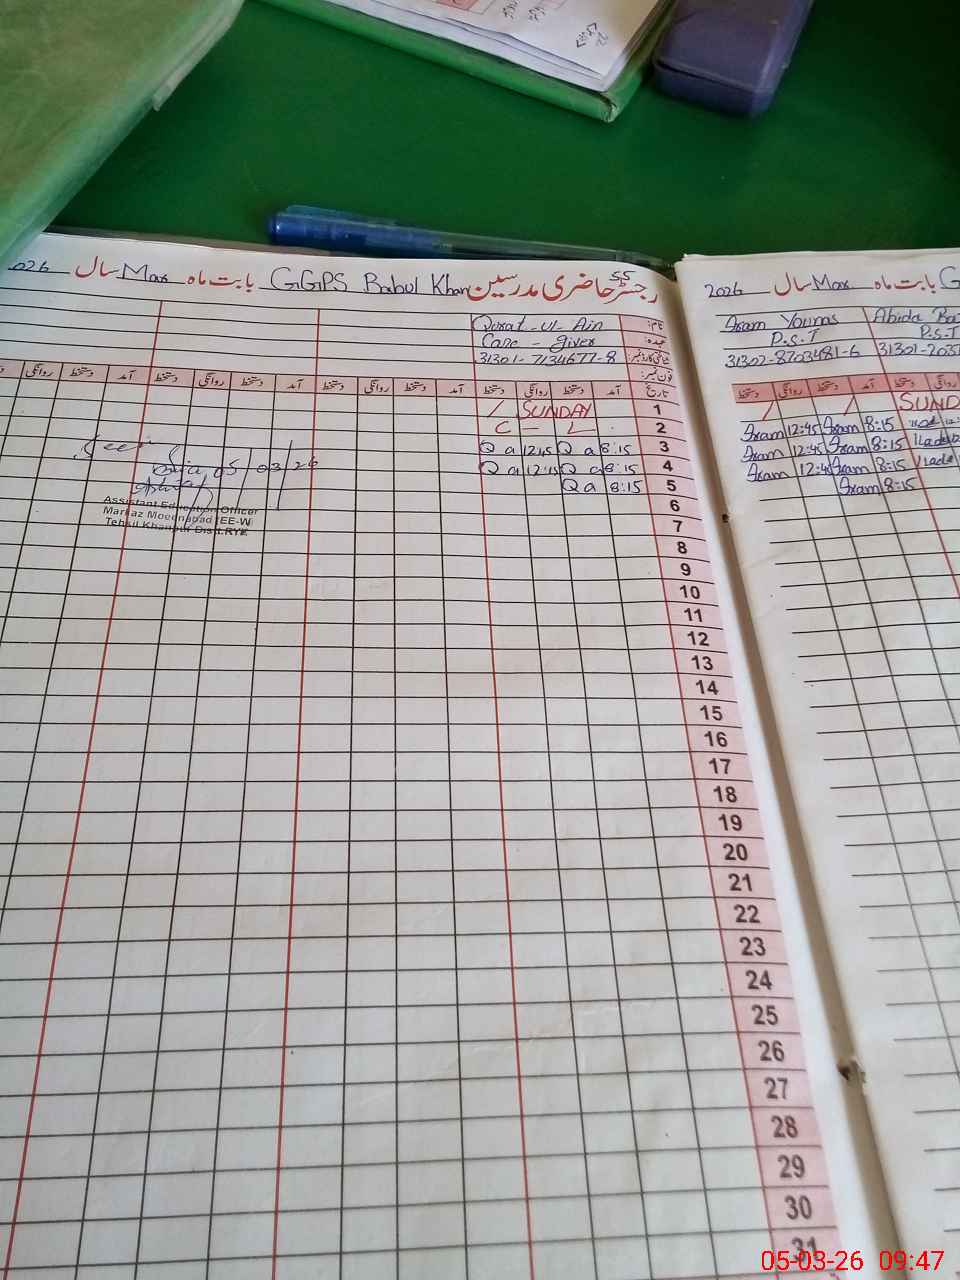 رجسٹر حاضری مدرسین GGPS Babul Khan بابت ماہ Mar سال 2026
نام: Qurat-ul-Ain
عہدہ: Care-giver
شناختی کارڈ نمبر: 31301-7134677-8
فون نمبر:
تاریخ آمد دستخط روانگی دستخط آمد دستخط روانگی دستخط آمد دستخط روانگی دستخط
1 SUNDAY /
2 C - L
3 8:15 Qa 12:45 Qa
4 8:15 Qa 12:45 Qa
5 8:15 Qa
6
7
8
9
10
11
12
13
14
15
16
17
18
19
20
21
22
23
24
25
26
27
28
29
30
31
05/03/26
Assistant Education Officer
Markaz Moeenabad (EE-W)
Tehsil Khanpur Distt.RYK
بابت ماہ Mar سال 2026
Iram Younas
P.S.T
31302-8703481-6
Abida
P.S.T
31301-
آمد دستخط روانگی دستخط
SUND
Iram 12:45 Iram 8:15
Iram 12:45 Iram 8:15
Iram 12:45 Iram 8:15
Iram 8:15
05-03-26 09:47